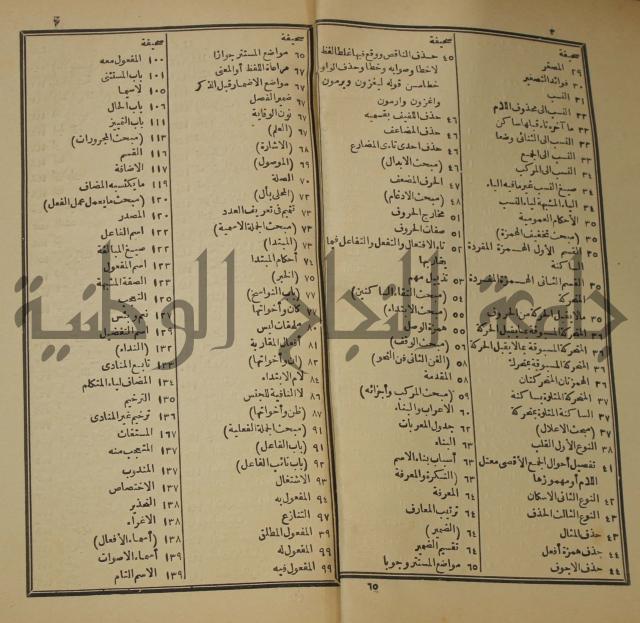 ٢
صحيفة
٢٩ المصغر
٣٠ فوائد التصغير
٣١ النسب
٣٣ النسب الى محذوف اللام
٣٣ ما آخره تاء قبلها ساكن
٣٣ النسب الى الثنائى وضعا
٣٣ النسب الى الجمع
٣٤ النسب الى المركب
٣٤ صيغ النسب غير ما فيه الياء
٣٤ الياء المشبهة لياء النسب
٣٥ الأحكام العمومية
٣٥ (مبحث تخفيف الهمزة)
٣٥ القسم الأول الهمزة المفردة
الساكنة
٣٥ القسم الثانى الهمزة المفردة
المتحركة
٣٥ ما لا يقبل الحركة من الحروف
المتحركة المسبوقة بما يقبل الحركة
المتحركة المسبوقة بما لا يقبل الحركة
٣٦ المتحركة المسبوقة بمتحرك
٣٦ الهمزتان المتحركتان
٣٧ المتحركة المتلوة بساكنة
٣٧ الساكنة المتلوة بمتحركة
٣٧ (مبحث الاعلال)
٣٨ النوع الأول القلب
٤١ تفصيل أحوال الجمع الأقصى معتل
اللام أو مهموزها
٤٢ النوع الثانى الاسكان
٤٣ النوع الثالث الحذف
٤٣ حذف المثال
٤٤ حذف همزة أفعل
٤٤ حذف الاجوف
صحيفة
٤٥ حذف الناقص ووقع فيها غلط الفظ
لا خطا وصوابه وخطا وحذف الواو
خطا من قوله ليغزون ويرمون
واغزون وارمون
٤٦ حذف اللفيف بقسميه
٤٦ حذف المضاعف
٤٦ حذف احدى تاءى المضارع
٤٦ (مبحث الابدال)
٤٧ الحرف المضعف
٤٨ (مبحث الادغام)
٥١ مخارج الحروف
٥١ صفات الحروف
٥٢ تاء الافتعال والتفعل والتفاعل فيما
يقاربها
٥٣ تذييل مهم
٥٤ (مبحث التقاء الساكنين)
٥٥ (مبحث الابتداء)
٥٥ همزة الوصل
(مبحث الوقف)
٥٨ (الفن الثانى فن النحو)
٥٨ المقدمة
٥٩ (مبحث المركب وأجزائه)
٦٠ الاعراب والبناء
٦٢ جدول المعربات
٦٣ البناء
٦٣ أسباب بناء الاسم
٦٣ (النكرة والمعرفة
٦٤ المعرفة
٦٤ ترتيب المعارف
٦٤ (الضمير)
٦٤ تقسيم الضمير
٦٥ مواضع المستتر وجوبا
٣
صحيفة
٦٥ مواضع المستتر جوازا
٦٧ مراعاة اللفظ أو المعنى
٦٧ مواضع الاضمار قبل الذكر
٦٧ ضمير الفصل
٦٧ نون الوقاية
٦٧ (العلم)
٦٨ (الاشارة)
٦٩ (الموصول)
٧٠ الصلة
٧٢ (المحلى بأل)
٧٣ تتميم فى تعريف العدد
٧٣ (مبحث الجملة الاسمية)
٧٣ (المبتدا)
٧٤ أحكام المبتدا
٧٥ (الخبر)
٧٧ (باب النواسخ)
كان وأخواتها
ملحقات ليس
أفعال المقاربة
٨٢ (ان وأخواتها)
٨٤ لام الابتداء
٨٦ لا النافية للجنس
٨٧ (ظن وأخواتها)
٩١ (مبحث الجملة الفعلية)
٩١ (باب الفاعل)
٩٢ (باب نائب الفاعل)
٩٣ الاشتغال
٩٤ المفعول به
٩٧ التنازع
المفعول المطلق
٩٩ المفعول له
٩٩ المفعول فيه
صحيفة
١٠٠ المفعول معه
١٠١ باب المستثنى
١٠٥ لاسيما
١٠٦ باب الحال
١١١ باب التمييز
١١٣ (مبحث المجرورات)
١١٦ القسم
١١٧ الاضافة
١١٩ ما يكتسبه المضاف
١٢٠ (مبحث ما يعمل عمل الفعل)
١٢٠ المصدر
١٢١ اسم الفاعل
١٢٢ صيغ المبالغة
١٢٣ اسم المفعول
١٢٣ الصفة المشبهة
التعجب
نعم وبئس
١٢٩ اسم التفضيل
١٣٢ (النداء)
تابع المنادى
١٣٤ المضاف لياء المتكلم
١٣٥ الترخيم
١٣٦ ترخيم غير المنادى
المستغاث
١٣٧ المتعجب منه
١٣٧ المندوب
١٣٧ الاختصاص
١٣٨ التحذير
١٣٨ الاغراء
١٣٨ (أسماء الأفعال)
١٣٩ أسماء الاصوات
١٣٩ الاسم التام
٦٥
جامعة النجاح الوطنية